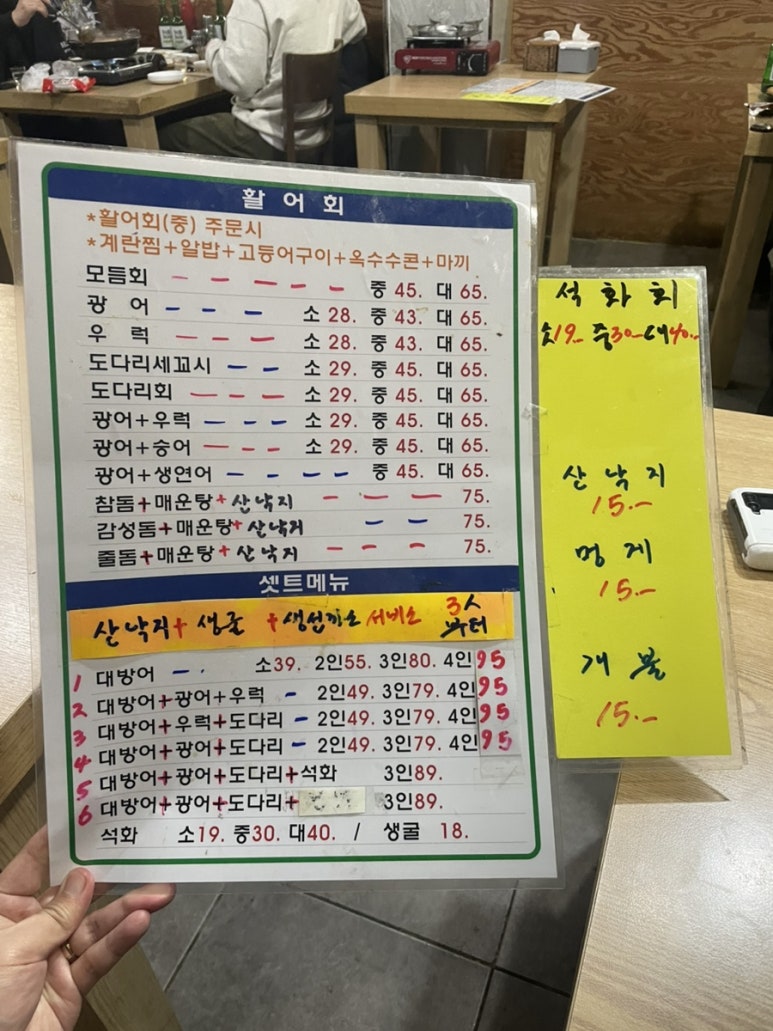 활어회
*활어회(중) 주문시
*계란찜+알밥+고등어구이+옥수수콘+마끼
모듬회 - - - - - 중 45. 대 65.
광 어 - - - 소 28. 중 43. 대 65.
우 럭 - - - 소 28. 중 43. 대 65.
도다리세꼬시 - - 소 29. 중 45. 대 65.
도다리회 - - - 소 29. 중 45. 대 65.
광어+우럭 - - - 소 29. 중 45. 대 65.
광어+숭어 - - - 소 29. 중 45. 대 65.
광어+생연어 - - - - 중 45. 대 65.
참돔+매운탕+산낙지 - - - 75.
감성돔+매운탕+산낙지 - - 75.
줄돔+매운탕+산낙지 - - - 75.
셋트메뉴
산낙지+ 생굴 +생선까스 서비스 3人부터
1 대방어 - 소39. 2인55. 3인80. 4인95
2 대방어+광어+우럭 - 2인49. 3인79. 4인95
3 대방어+우럭+도다리 - 2인49. 3인79. 4인95
4 대방어+광어+도다리 - 2인49. 3인79. 4인95
5 대방어+광어+도다리+석화 3인89.
6 대방어+광어+도다리+ 3인89.
석화 소19. 중30. 대40. / 생굴 18.
석 화 회
소19.- 중30.- 대40.-
산 낙 지
15.-
멍 게
15.-
개 불
15.-